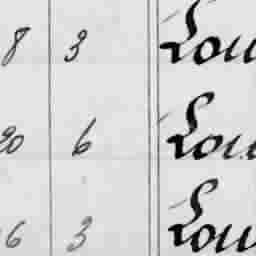 8 3 Lou
20 6 Lou
6 3 Lou